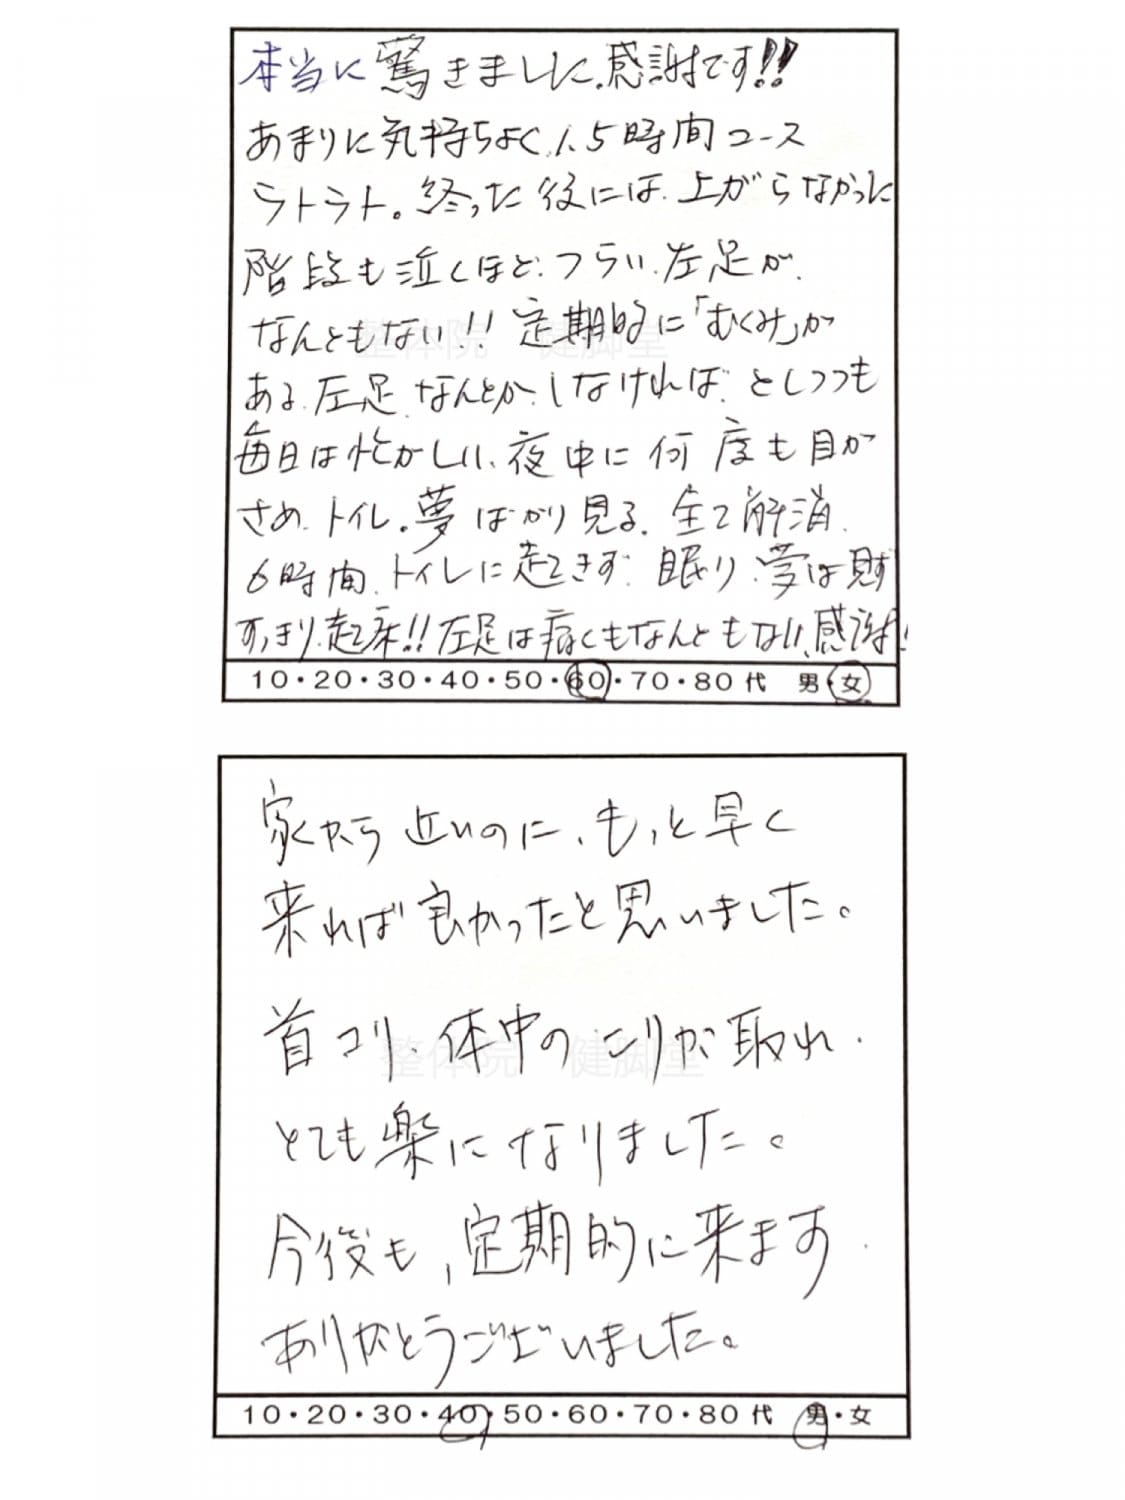 本当に驚きました.感謝です!!
あまりに気持ちよく、1.5時間コース
ウトウト。終った後には、上がらなかった
階段も泣くほど、つらい、左足が、
なんともない!! 定期的に「むくみ」が
ある、左足、なんとか、しなければ、としつつも
毎日は忙がしい、夜中に何度も目が
さめ、トイレ。夢ばかり見る、全て解消、
6時間、トイレに起きず、眠り、夢は見ず
すっきり起床!!左足は痛くもなんともない、感謝!
10・20・30・40・50・60・70・80 代 男・女
家から近いのに、もっと早く
来れば良かったと思いました。
首コリ、体中のこりが取れ、
とても楽になりました。
今後も、定期的に来ます
ありがとうございました。
10・20・30・40・50・60・70・80 代 男・女
整体院 健脚堂
整体院 健脚堂